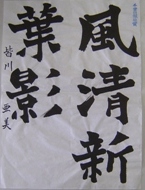 風清新
葉影
皆川 亜美